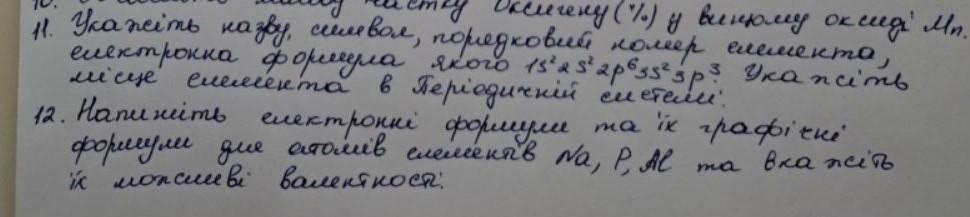 масову частку Оксигену (%) у вищому оксиді Mn.
11. Укажіть назву, символ, порядковий номер елемента,
електронна формула якого 1s²2s²2p⁶3s²3p³. Укажіть
місце елемента в Періодичній системі.
12. Напишіть електронні формули та їх графічні
формули для атомів елементів Na, P, Al та вкажіть
їх можливі валентності.